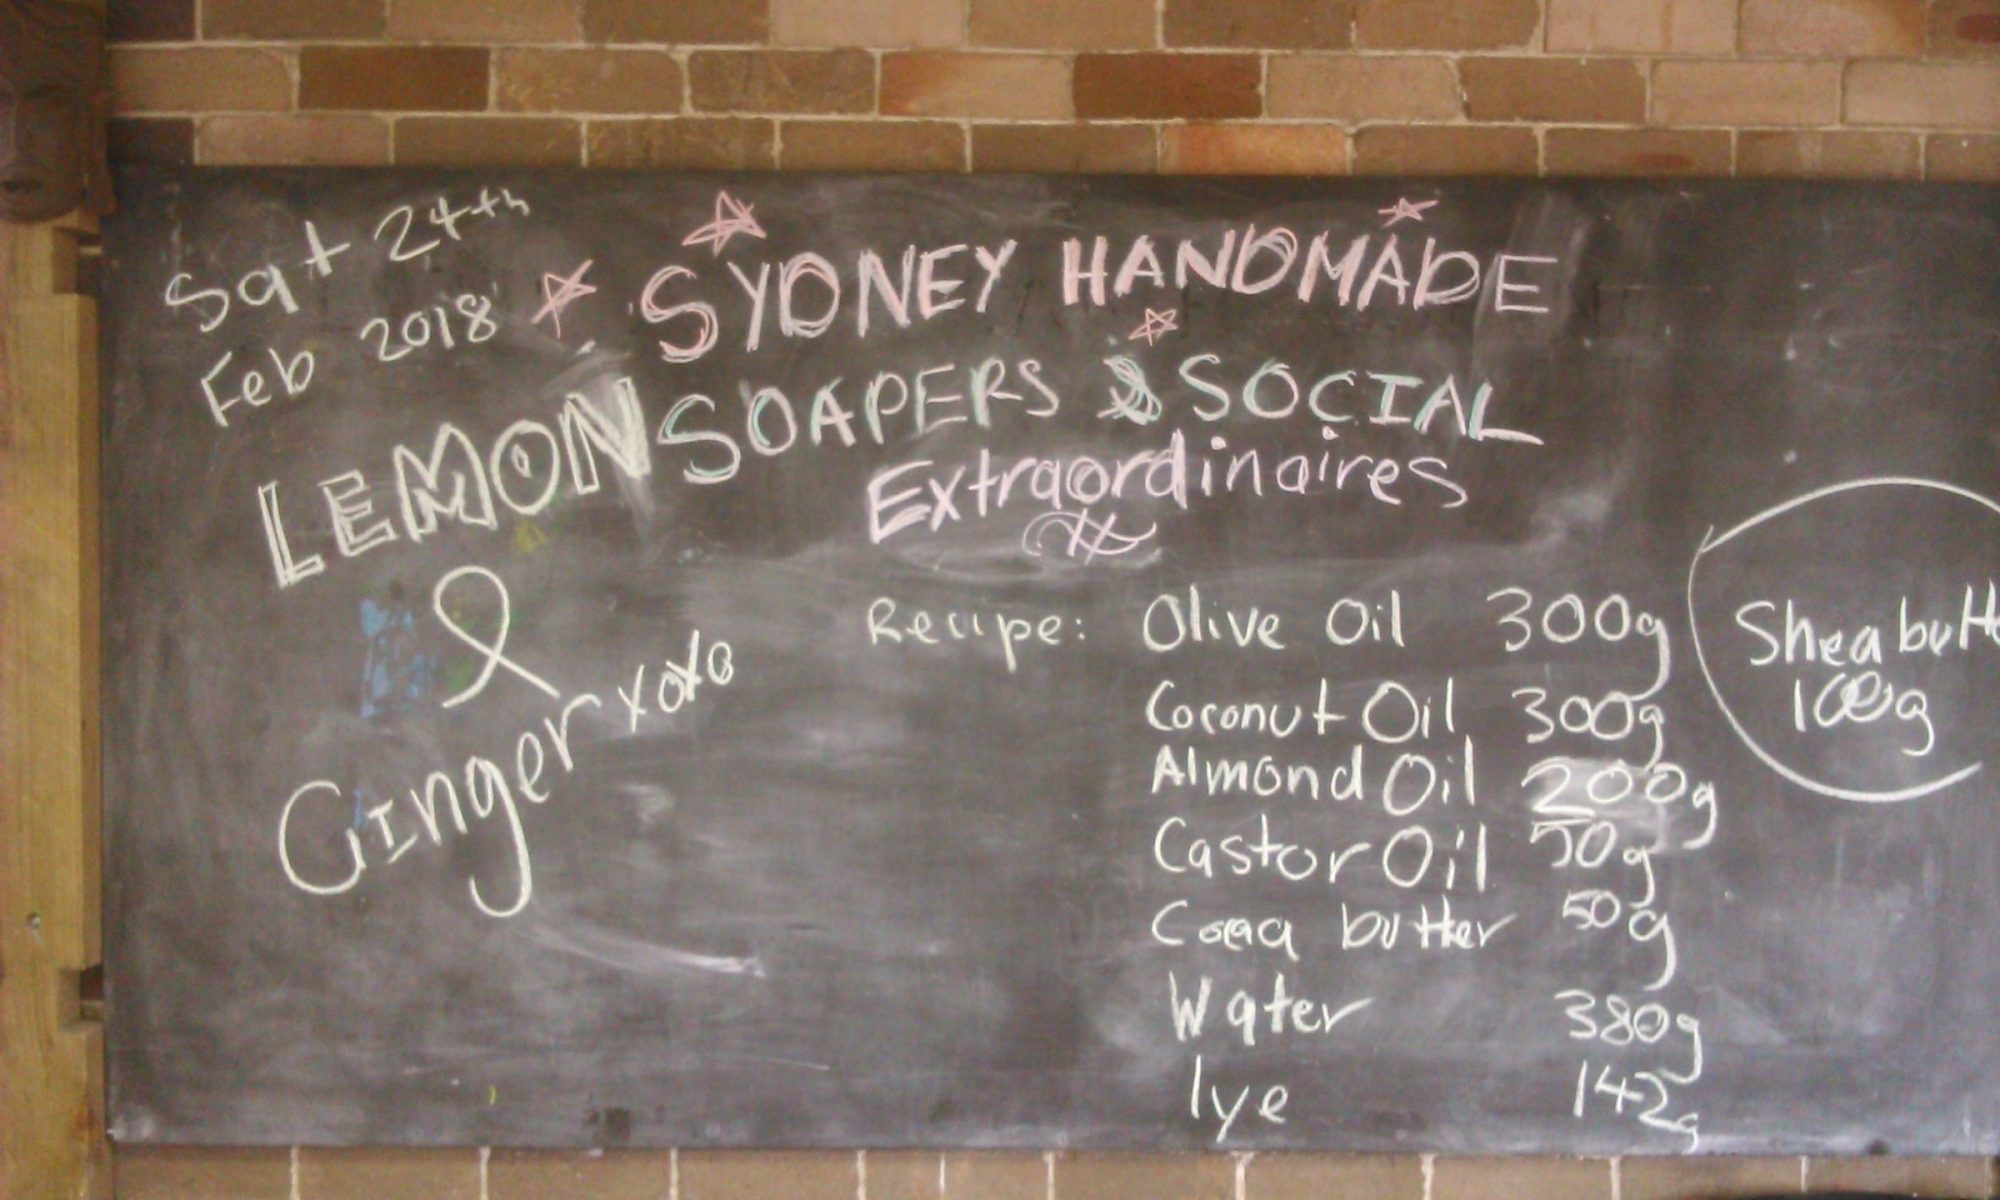 Sat 24th
Feb 2018
SYDNEY HANDMADE
SOAPERS & SOCIAL
Extraordinaires
LEMON
&
Ginger xoxo
Recipe: Olive Oil 300g
Coconut Oil 300g
Almond Oil 200g
Castor Oil 50g
Cocoa butter 50g
Water 380g
lye 142g
Shea butte
100g